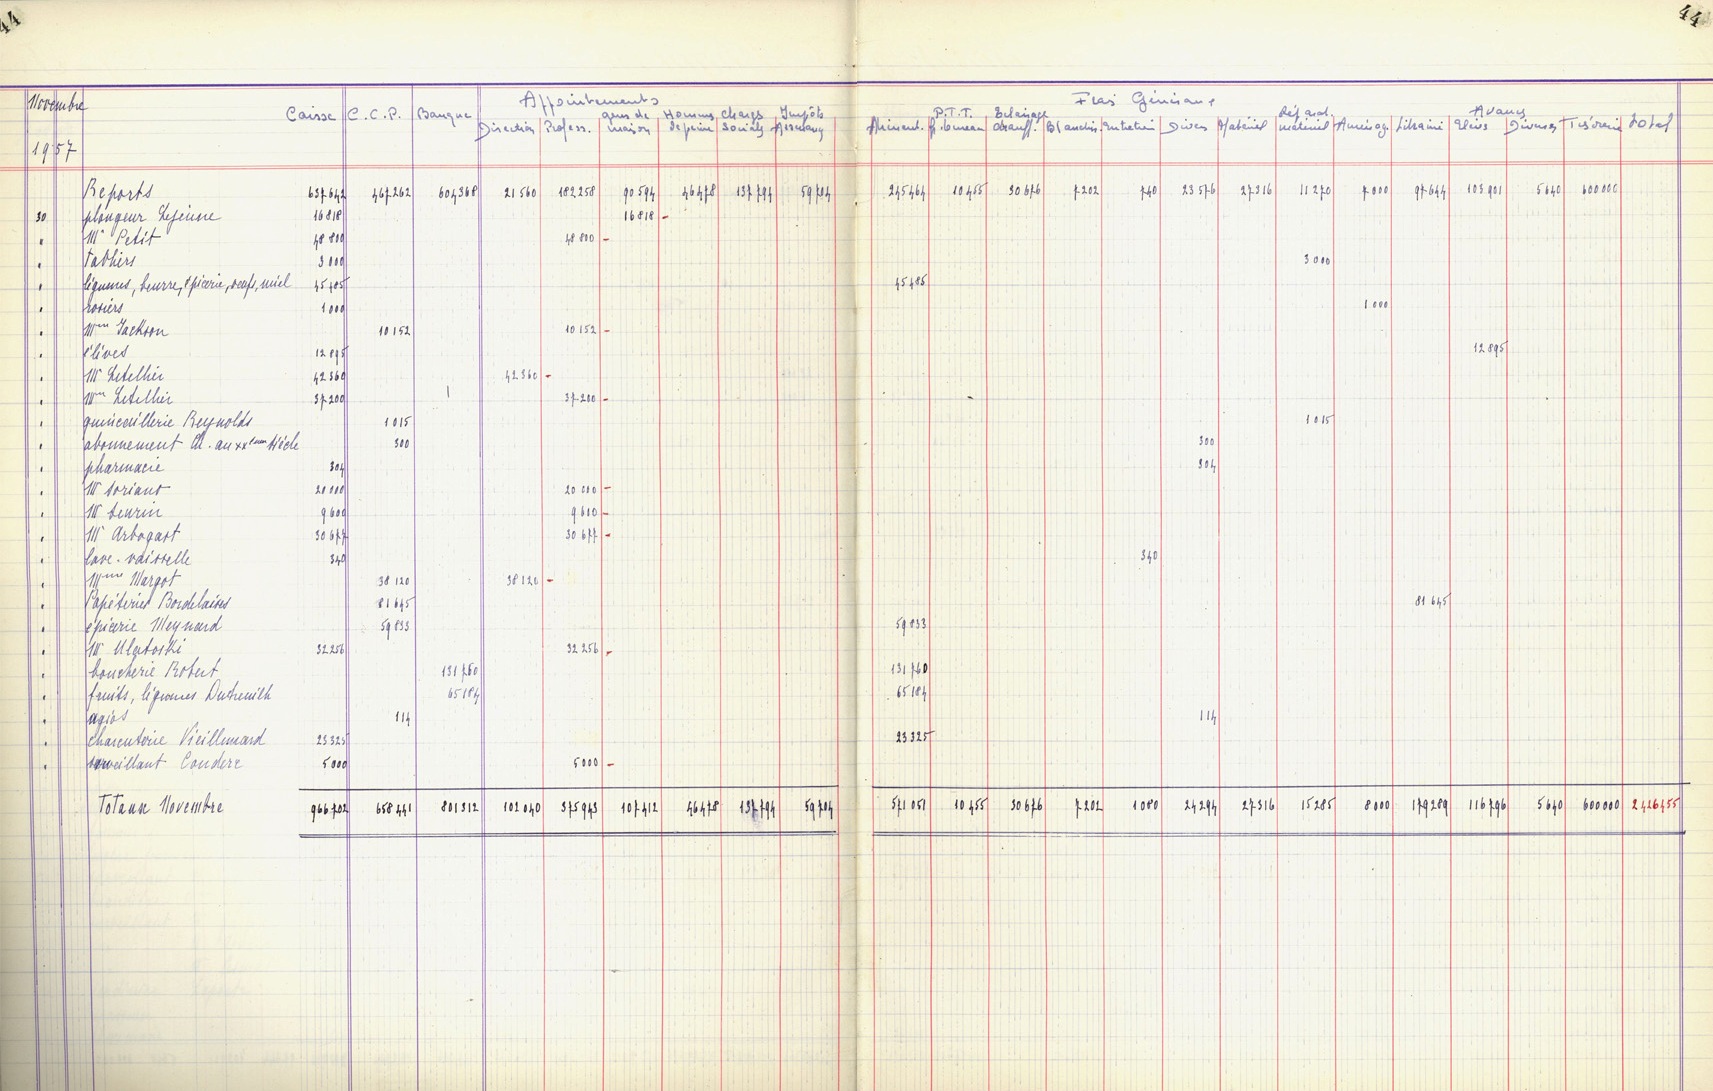 44 44
Novembre
1957
Appointements Frais Généraux
Caisse C.C.P. Banque Direction Profess. gens de maison Hommes de peine charges sociales Impôts Assurances Aliment. P.T.T. f. bureau Eclairage chauff. Blanchis. entretien Divers Matériel Répard. matériel Aménag. Librairie Avances Elèves Diverses Trésorerie total
Reports 637642 467262 604368 21560 182258 90594 46478 137794 59704 245464 10455 30676 7202 740 23576 27316 11270 7000 97644 103901 5640 600000
30 plongeur Lejeune 16818 16818 -
" Mr Petit 48800 48800 -
" tabliers 3000 3000
" légumes, beurre, épicerie, oeufs, miel 45485 45485
" rosiers 1000 1000
" Mme Jackson 10152 10152 -
" élèves 12895 12895
" Mr Letellier 42360 42360 -
" Mme Letellier 37200 37200 -
" quincaillerie Reynolds 1015 1015
" abonnement Ch. au XXème siècle 300 300
" pharmacie 304 304
" Mr Soriano 20000 20000 -
" Mr Seurin 9600 9600 -
" Mr Arbogast 30677 30677 -
" lave-vaisselle 340 340
" Mme Margot 38120 38120 -
" Papéteries Bordelaises 81645 81645
" épicerie Meynard 59833 59833
" Mr Ulatoski 32256 32256 -
" boucherie Robert 131760 131760
" fruits, légumes Dutheuilh 65184 65184
" agios 114 114
" charcuterie Vieillemard 23325 23325
" surveillant Couderc 5000 5000 -
Totaux Novembre 966702 658441 801312 102040 375943 107412 46478 137794 59704 571051 10455 30676 7202 1080 24294 27316 15285 8000 179289 116796 5640 600000 2426455